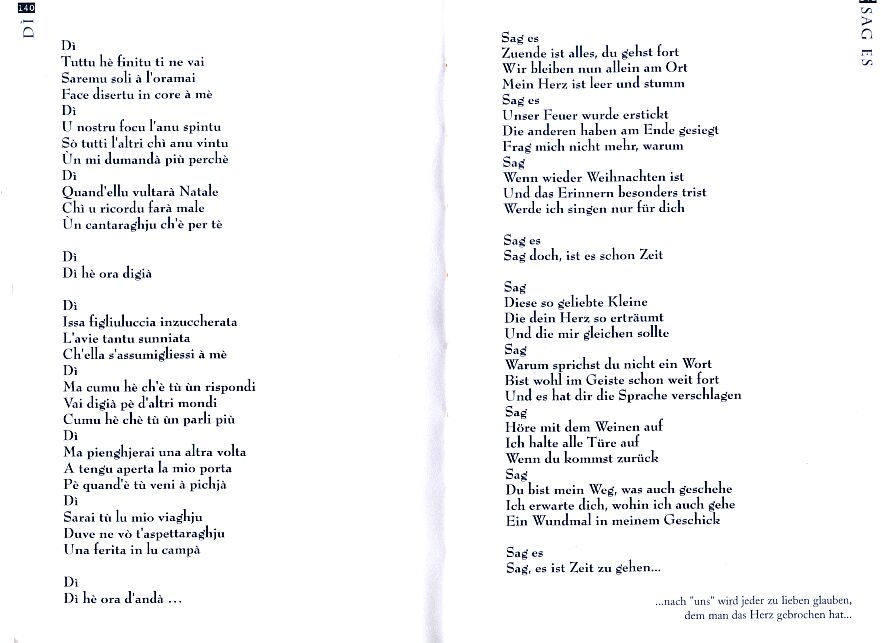 140
DÌ
Dì
Tuttu hè finitu ti ne vai
Saremu soli à l'oramai
Face disertu in core à mè
Dì
U nostru focu l'anu spintu
Sò tutti l'altri chì anu vintu
Ùn mi dumandà più perchè
Dì
Quand'ellu vultarà Natale
Chì u ricordu farà male
Ùn cantaraghju ch'è per tè

Dì
Dì hè ora digià

Dì
Issa figliuluccia inzuccherata
L'avie tantu sunniata
Ch'ella s'assumigliessi à mè
Dì
Ma cumu hè ch'è tù ùn rispondi
Vai digià pè d'altri mondi
Cumu hè chè tù ùn parli più
Dì
Ma pienghjerai una altra volta
A tengu aperta la mio porta
Pè quand'è tù veni à pichjà
Dì
Sarai tù lu mio viaghju
Duve ne vò t'aspettaraghju
Una ferita in lu campà

Dì
Dì hè ora d'andà ...

SAG ES
Sag es
Zuende ist alles, du gehst fort
Wir bleiben nun allein am Ort
Mein Herz ist leer und stumm
Sag es
Unser Feuer wurde erstickt
Die anderen haben am Ende gesiegt
Frag mich nicht mehr, warum
Sag
Wenn wieder Weihnachten ist
Und das Erinnern besonders trist
Werde ich singen nur für dich

Sag es
Sag doch, ist es schon Zeit

Sag
Diese so geliebte Kleine
Die dein Herz so erträumt
Und die mir gleichen sollte
Sag
Warum sprichst du nicht ein Wort
Bist wohl im Geiste schon weit fort
Und es hat dir die Sprache verschlagen
Sag
Höre mit dem Weinen auf
Ich halte alle Türe auf
Wenn du kommst zurück
Sag
Du bist mein Weg, was auch geschehe
Ich erwarte dich, wohin ich auch gehe
Ein Wundmal in meinem Geschick

Sag es
Sag, es ist Zeit zu gehen...

...nach "uns" wird jeder zu lieben glauben,
dem man das Herz gebrochen hat...